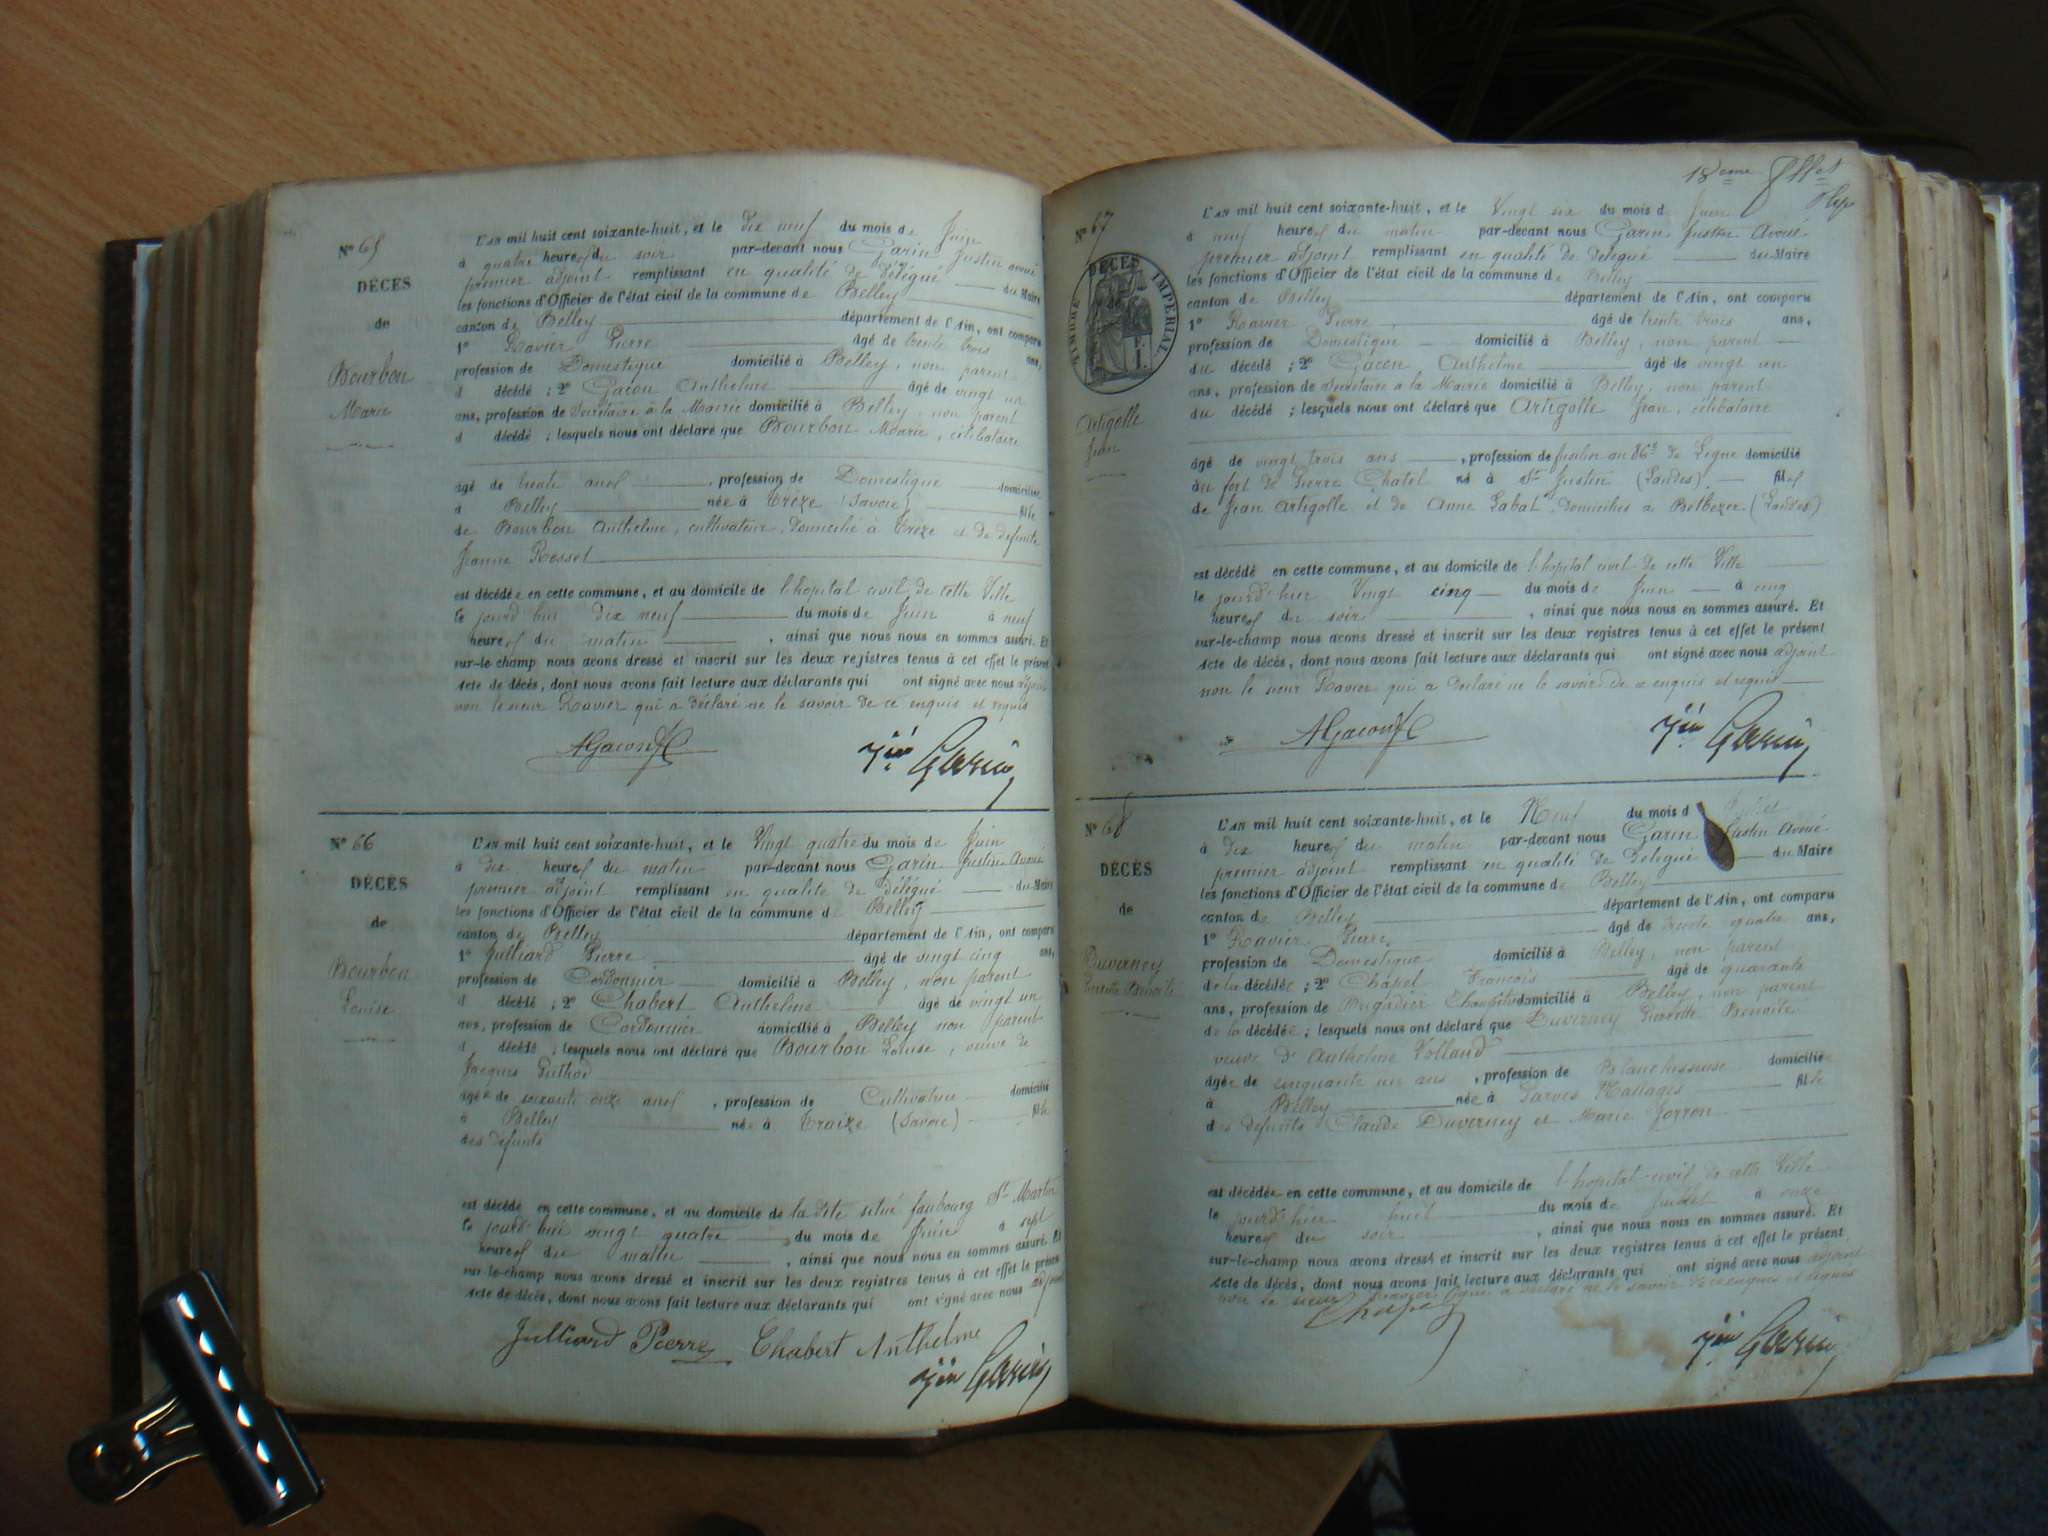 N° 65
DÉCÈS
de
Bourbon
Marie
L'AN mil huit cent soixante-huit, et le dix neuf du mois de Juin
à quatre heures du soir par-devant nous Garin Justin avoué
premier adjoint remplissant en qualité de délégué du Maire
les fonctions d'Officier de l'état civil de la commune de Belley
canton de Belley département de l'Ain, ont comparu
1° Ravier Pierre âgé de trente trois ans,
profession de Domestique domicilié à Belley, non parent
d décédé ; 2° Gacon Anthelme âgé de vingt un
ans, profession de Secrétaire à la Mairie domicilié à Belley, non parent
d décédé ; lesquels nous ont déclaré que Bourbon Marie, célibataire
âgé de trente ans, profession de Domestique domicilié
à Belley née à Trèze (Savoie) fille
de Bourbon Anthelme, cultivateur, domicilié à Trèze et de defunte
Jeanne Rosset
est décédée en cette commune, et au domicile de l'hopital civil de cette Ville
le jourd'hui dix neuf du mois de Juin à neuf
heures du matin, ainsi que nous nous en sommes assuré. Et
sur-le-champ nous avons dressé et inscrit sur les deux rejistres tenus à cet effet le présent
Acte de décès, dont nous avons fait lecture aux déclarants qui ont signé avec nous adjoint
non le sieur Ravier qui a déclaré ne le savoir de ce enquis et requis
AGacon
Jin Garin
N° 66
DÉCÈS
de
Bourbon
Louise
L'AN mil huit cent soixante-huit, et le Vingt quatre du mois de Juin
à dix heures du matin par-devant nous Garin Justin Avoué
premier adjoint remplissant en qualité de délégué du Maire
les fonctions d'Officier de l'état civil de la commune de Belley
canton de Belley département de l'Ain, ont comparu
1° Juilliard Pierre âgé de vingt cinq ans,
profession de Cordonnier domicilié à Belley, non parent
d décédé ; 2° Chabert Anthelme âgé de vingt un
ans, profession de Cordonnier domicilié à Belley non parent
d décédé ; lesquels nous ont déclaré que Bourbon Louise, veuve de
Jacques Puthod
âgée de soixante onze ans, profession de Cultivatrice domiciliée
à Belley née à Traize (Savoie) fille
des défunts
est décédé en cette commune, et au domicile de la dite situé faubourg St Martin
le jourd'hui vingt quatre du mois de Juin à sept
heures du matin, ainsi que nous nous en sommes assuré. Et
sur-le-champ nous avons dressé et inscrit sur les deux registres tenus à cet effet le présent
Acte de décès, dont nous avons fait lecture aux déclarants qui ont signé avec nous adjoint
Juilliard Pierre Chabert Anthelme
Jin Garin
18eme
N° 67
DÉCÈS
TIMBRE IMPÉRIAL
Artigolle
Jean
L'AN mil huit cent soixante-huit, et le Vingt six du mois de Juin
à neuf heures du matin par-devant nous Garin Justin Avoué
premier adjoint remplissant en qualité de Délégué du Maire
les fonctions d'Officier de l'état civil de la commune de Belley
canton de Belley département de l'Ain, ont comparu
1° Ravier Pierre, âgé de trente trois ans,
profession de Domestique domicilié à Belley, non parent
du décédé ; 2° Gacon Anthelme âgé de vingt un
ans, profession de Secrétaire à la Mairie domicilié à Belley, non parent
du décédé ; lesquels nous ont déclaré que Artigolle Jean, célibataire
âgé de vingt trois ans, profession de fusilier au 86e de Ligne domicilié
au fort de Pierre Chatel né à St Justin (Landes) fils
de Jean Artigolle et de Anne Labat, domiciliés a Betbezer (Landes)
est décédé en cette commune, et au domicile de l'hopital civil de cette Ville
le jourd'hier Vingt cinq du mois de Juin à cinq
heures du soir, ainsi que nous nous en sommes assuré. Et
sur-le-champ nous avons dressé et inscrit sur les deux registres tenus à cet effet le présent
Acte de décès, dont nous avons fait lecture aux déclarants qui ont signé avec nous adjoint
non le sieur Ravier qui a déclaré ne le savoir de ce enquis et requis
AGacon
Jin Garin
N° 68
DÉCÈS
de
Duverney
Pierrette Benoite
L'AN mil huit cent soixante-huit, et le Neuf du mois d Juillet
à dix heures du matin par-devant nous Garin Justin Avoué
premier adjoint remplissant en qualité de Délégué du Maire
les fonctions d'Officier de l'état civil de la commune de Belley
canton de Belley département de l'Ain, ont comparu
1° Ravier Pierre âgé de trente quatre ans,
profession de Domestique domicilié à Belley, non parent
de la décédée ; 2° Chapel François âgé de quarante
ans, profession de Brigadier domicilié à Belley, non parent
de la décédée ; lesquels nous ont déclaré que Duverney Pierrette Benoite
veuve d'Anthelme Volland
âgée de cinquante un ans, profession de Blanchisseuse domiciliée
à Belley née à Parves Nattages fille
des defunts Claude Duverney et Marie
est décédée en cette commune, et au domicile de l'hopital-civil de cette Ville
le jourd'hier huit du mois de Juillet à onze
heures du soir, ainsi que nous nous en sommes assuré. Et
sur-le-champ nous avons dressé et inscrit sur les deux registres tenus à cet effet le présent
Acte de décès, dont nous avons fait lecture aux déclarants qui ont signé avec nous adjoint
non le sieur Ravier qui a déclaré ne le savoir de ce enquis et requis
Chapel
Jin Garin